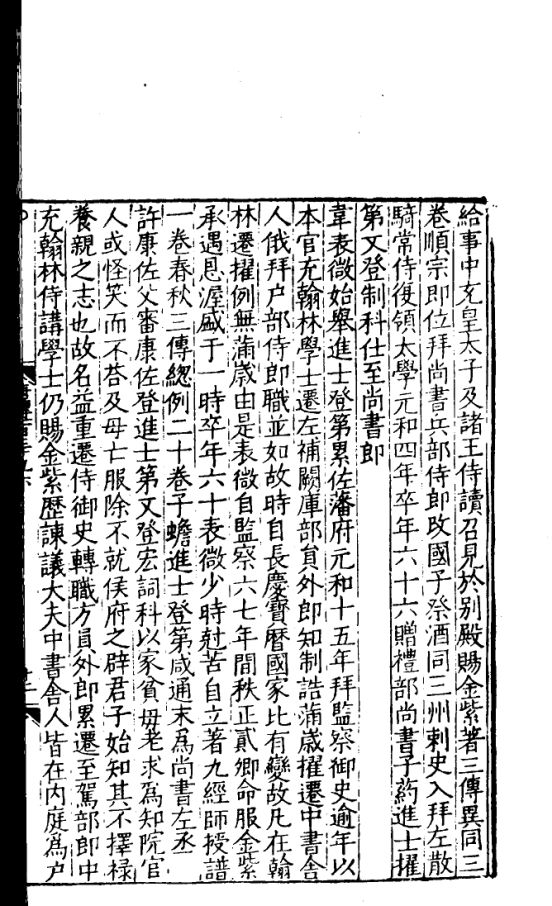 給事中充皇太子及諸王侍讀召見於别殿賜金紫著三傳異同三
卷順宗即位拜尚書兵部侍郎改國子祭酒同三州刺史入拜左散
騎常侍復領太學元和四年卒年六十六贈禮部尚書子葯進士擢
第又登制科仕至尚書郎
韋表微始舉進士登第累佐藩府元和十五年拜監察御史逾年以
本官充翰林學士遷左補闕庫部員外郎知制誥蒲歲擢遷中書舎
人俄拜户部侍郎職並如故時自長慶寶曆國家比有變故凡在翰
林遷擢例無蒲歲由是表微自監察六七年間秩正貳卿命服金紫
承遇恩渥盛于一時卒年六十表微少時尅苦自立著九經師授譜
一卷春秋三傳緫例二十卷子蟾進士登第咸通末爲尚書左丞
許康佐父審康佐登進士第又登宏詞科以家貧母老求爲知院官
人或怪笑而不荅及母亡服除不就侯府之辟君子始知其不擇禄
養親之志也故名益重遷侍御史轉職方員外郎累遷至駕部郎中
充翰林侍講學士仍賜金紫歴諫議大夫中書舎人皆在内庭爲户